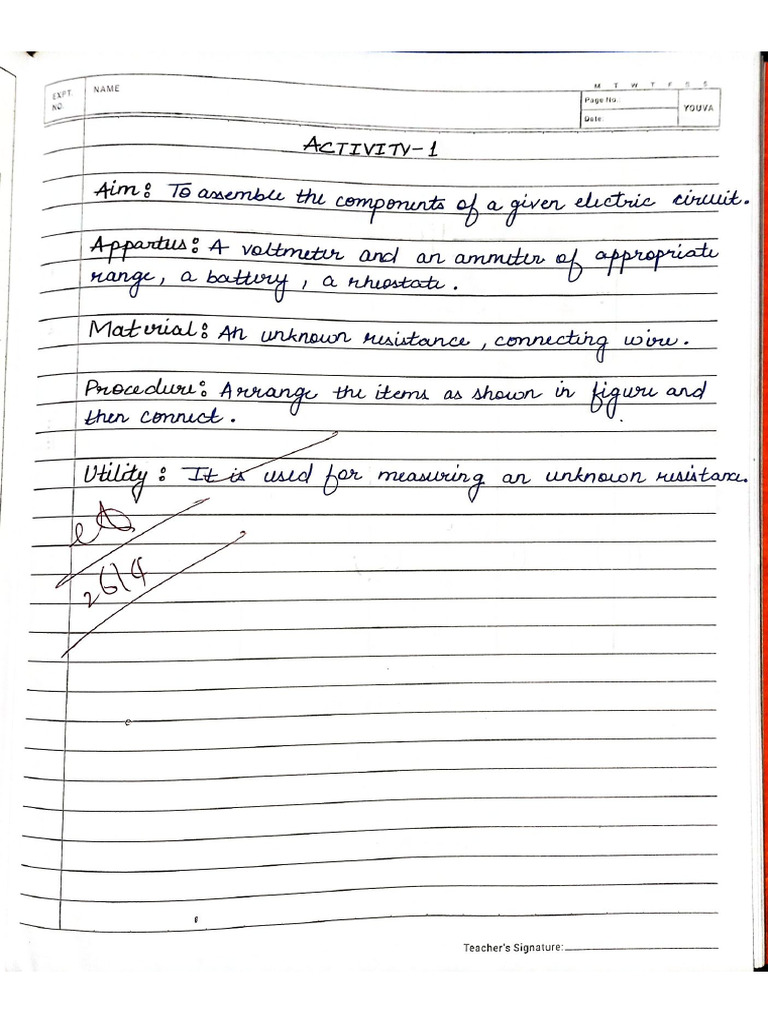 EXPT. NO.
NAME
M T W T F S S
Page No.:
YOUVA
Date:
ACTIVITY-1
Aim: To assemble the components of a given electric circuit.
Appartus: A voltmeter and an ammeter of appropriate
range, a battery, a rheostate.
Material: An unknown resistance, connecting wire.
Procedure: Arrange the items as shown in figure and
then connect.
Utility: It is used for measuring an unknown resistance.
26/4
Teacher's Signature: